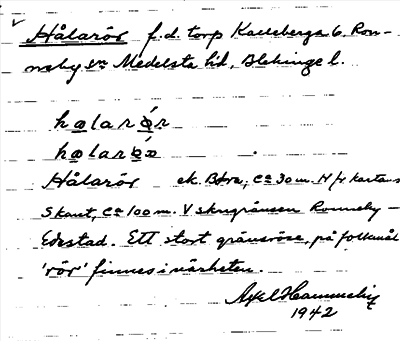 Hålarör f.d. torp Kalleberga 6, Ron-
neby sn Medelsta hd, Blekinge l.
halarǿr
halarǿ
Hålarör ek. Btra, ca 30 m. N fr kartans
S kant, ca 100 m. V skngränsen Ronneby –
Edestad. Ett stort gränsröse, på folkmål
'rör' finnes i närheten.
Axel
1942